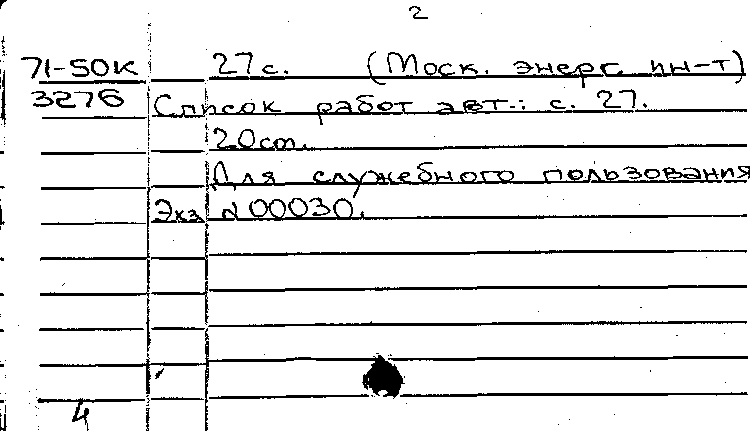 2
71-50к 27с. (Моск. энерг. ин-т)
3276 Список работ авт.: с. 27.
20см.
Для служебного пользования
Экз №00030.
4